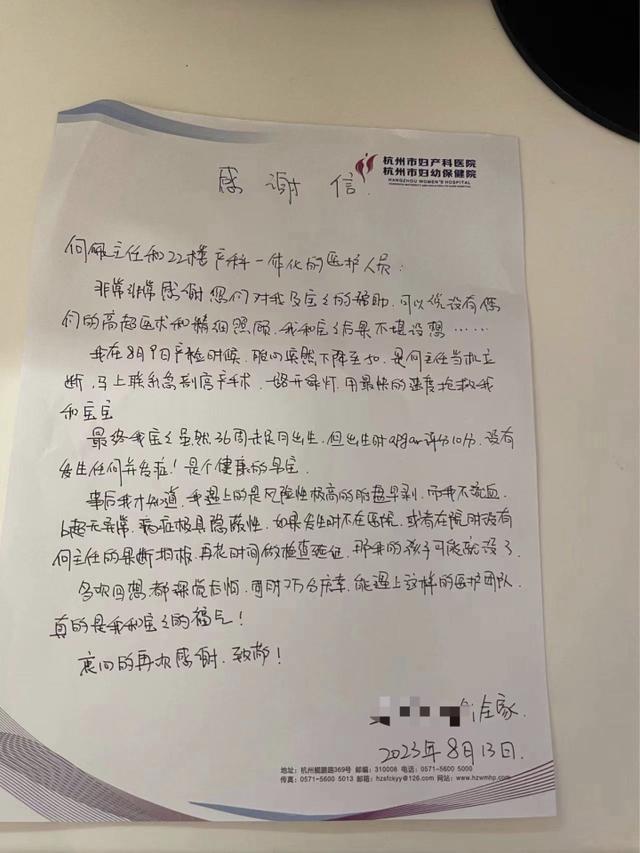 杭州市妇产科医院
杭州市妇幼保健院
HANGZHOU WOMEN'S HOSPITAL
感谢信.
何佩主任和22楼产科一体化的医护人员:
非常非常感谢您们对我及宝宝的帮助,可以说没有你
们的高超医术和精细照顾,我和宝宝后果不堪设想……
我在8月9日产检时候,胎心突然下降至40,是何主任当机立
断,马上联系急剖宫产手术,一路开绿灯,用最快的速度抢救我
和宝宝
最终我宝宝虽然36周未足月出生,但出生时apgar评分10分,没有
发生任何并发症!是个健康的宝宝.
事后我才知道,我遇上的是风险性极高的胎盘早剥,而我不流血,
b超无异常,病症极具隐蔽性,如果发生时不在医院,或者在院时没有
何主任的果断抉择,再花时间做检查验证,那我的孩子可能就没了.
多次回想都深觉后怕,同时万分庆幸,能遇上这样的医护团队,
真的是我和宝宝的福气!
衷心的再次感谢,致敬!
全家
2023年8月13日.
地址:杭州鲲鹏路369号 邮编:310008 电话:0571-5600 5000
传真:0571-5600 5013 邮箱:hzsfckyy@126.com 网站:www.hzwmhp.com